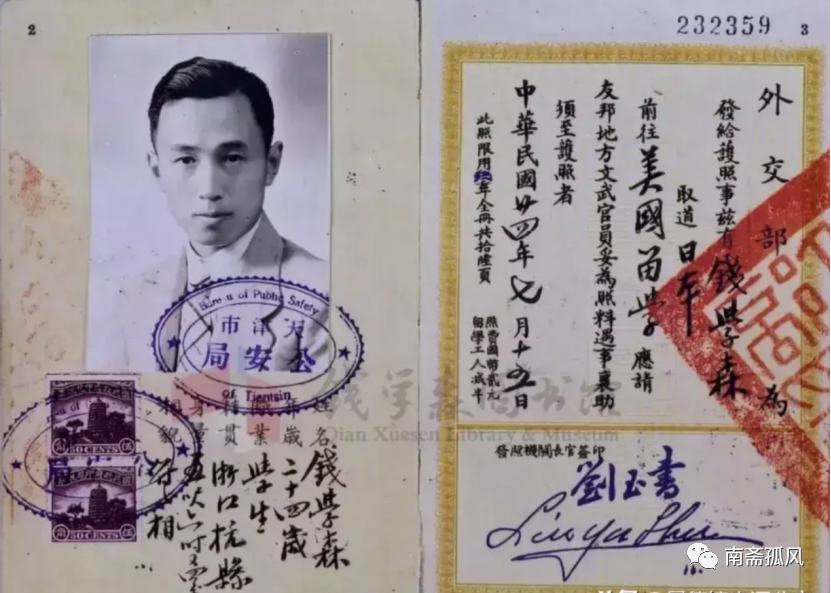 2
Bureau of Public Safety
天津市
公安局
of Tientsin
50 CENTS
50 CENTS
姓名 錢學森
年歲 二十四歲
職業 學生
籍貫 浙江杭縣
身量 五呎六吋
相貌 符相
232359
3
外交部為
發給護照事茲有錢學森
取道日本
前往美國留學應請
友邦地方文武官員妥為照料遇事襄助
須至護照者
中華民國廿四年七月十五日
此照限用年全冊共拾陸頁
照費國幣貳元
留學工人減半
發照機關長官簽印
劉玉書
Liu Yu Shu
錢学森图书馆
Qian Xuesen Library & Museum
南斋孤风